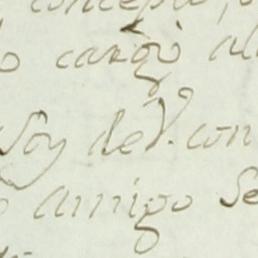 o cargo al
Soy de V. con
amigo Se